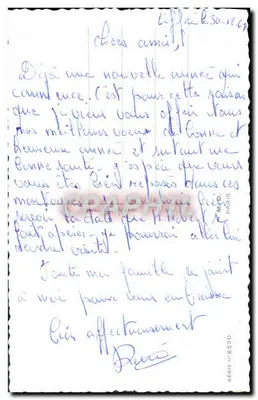 Liffré le 30-12-69
Chers amis,
Déjà une nouvelle année qui
commence. C'est pour cette raison
que je viens vous offrir tous
nos meilleurs vœux de bonne et
heureuse année et surtout une
bonne santé. J'espère que vous
vous êtes bien reposés dans ces
la date que
je pourrai aller lui
rendre visite.
Toute ma famille se joint
à moi pour vous embrasser
bien affectueusement
René
CPARAMA
PARIS
SÉRIE N° 6520